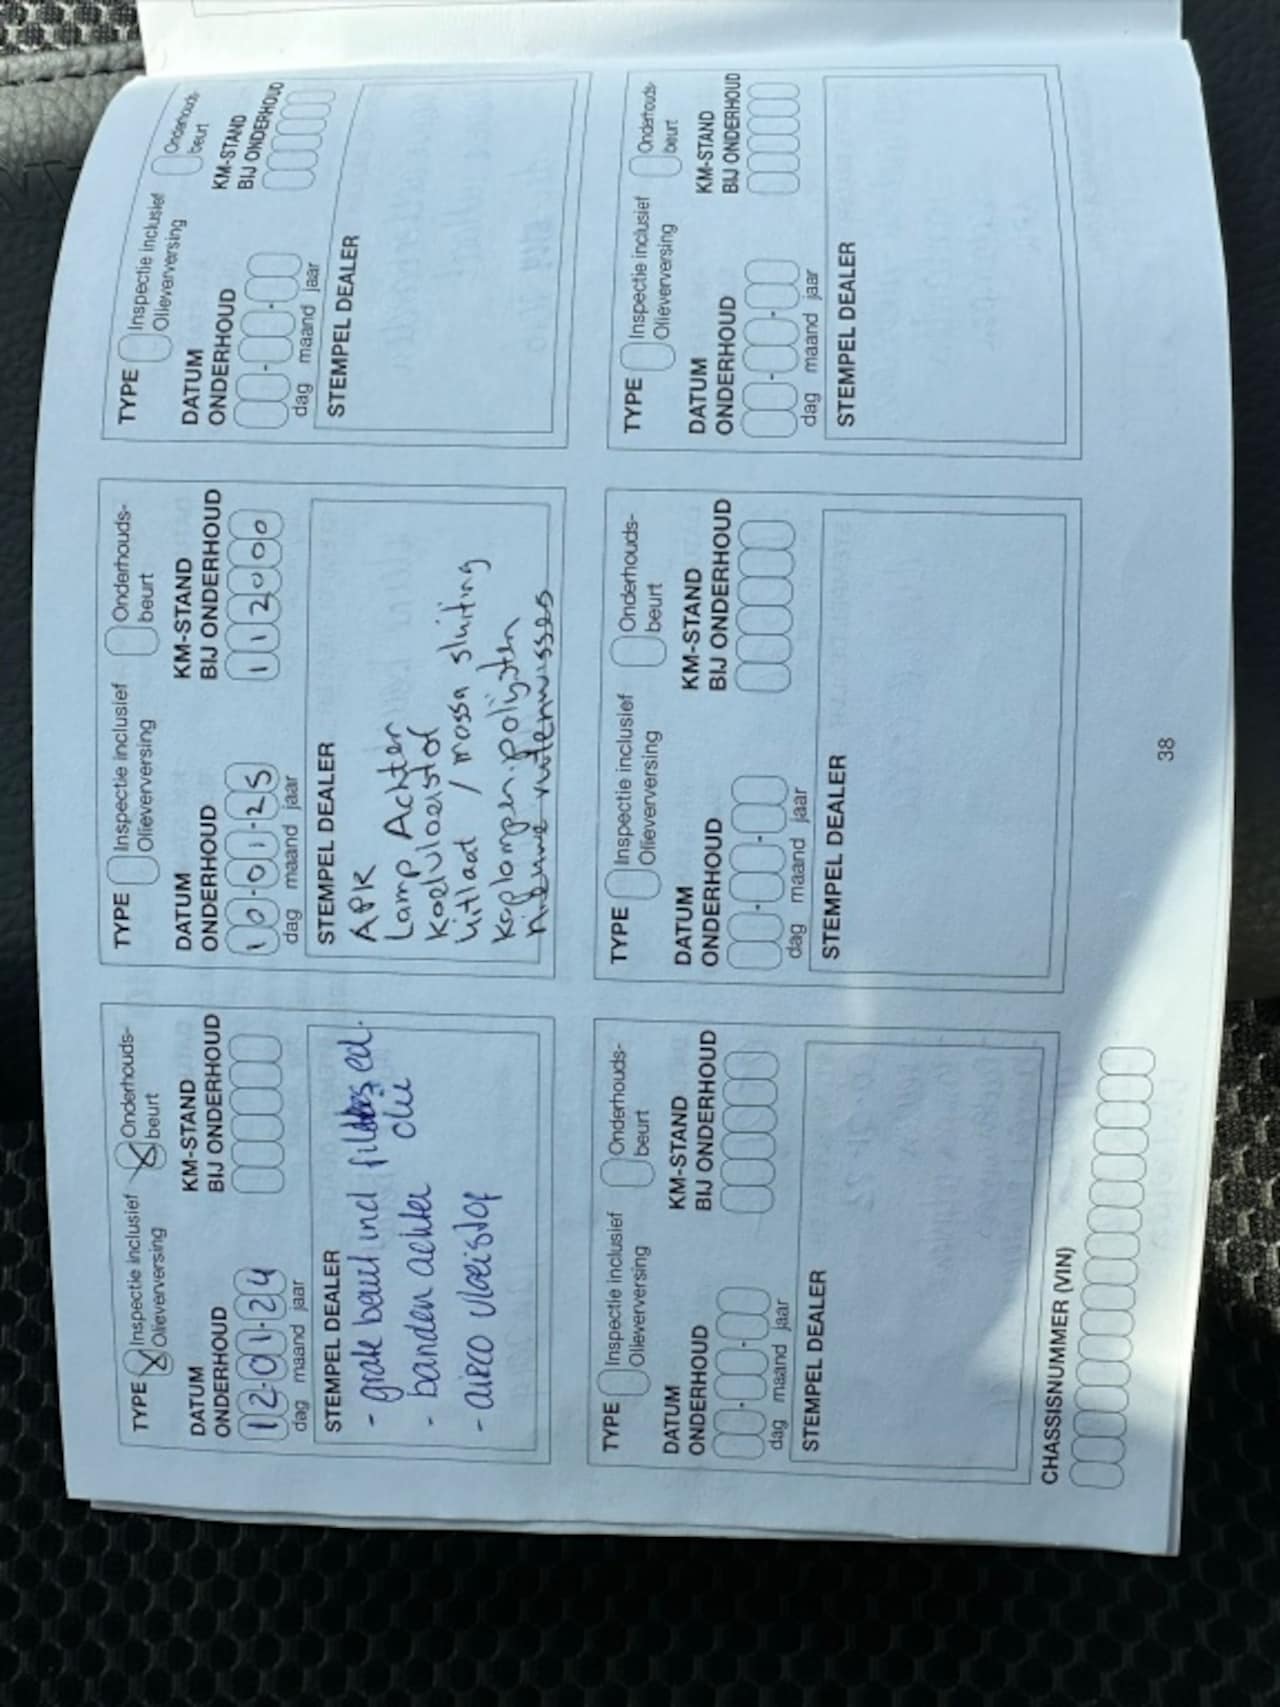 TYPE Inspectie inclusief Olieverversing Onderhouds-beurt
DATUM ONDERHOUD
KM-STAND BIJ ONDERHOUD
12-01-24
dag maand jaar
STEMPEL DEALER
- grote beurt incl filters ed.
olie
- banden achter
- airco vloeistof
TYPE Inspectie inclusief Olieverversing Onderhouds-beurt
DATUM ONDERHOUD
KM-STAND BIJ ONDERHOUD
10-01-25 112000
dag maand jaar
STEMPEL DEALER
APK
Lamp Achter
Koelvloeistof
Uitlaat / massa sluiting
Koplampen polijsten
TYPE Inspectie inclusief Olieverversing Onderhouds-beurt
DATUM ONDERHOUD
KM-STAND BIJ ONDERHOUD
dag maand jaar
STEMPEL DEALER
TYPE Inspectie inclusief Olieverversing Onderhouds-beurt
DATUM ONDERHOUD
KM-STAND BIJ ONDERHOUD
dag maand jaar
STEMPEL DEALER
TYPE Inspectie inclusief Olieverversing Onderhouds-beurt
DATUM ONDERHOUD
KM-STAND BIJ ONDERHOUD
dag maand jaar
STEMPEL DEALER
TYPE Inspectie inclusief Olieverversing Onderhouds-beurt
DATUM ONDERHOUD
KM-STAND BIJ ONDERHOUD
dag maand jaar
STEMPEL DEALER
CHASSISNUMMER (VIN)
38